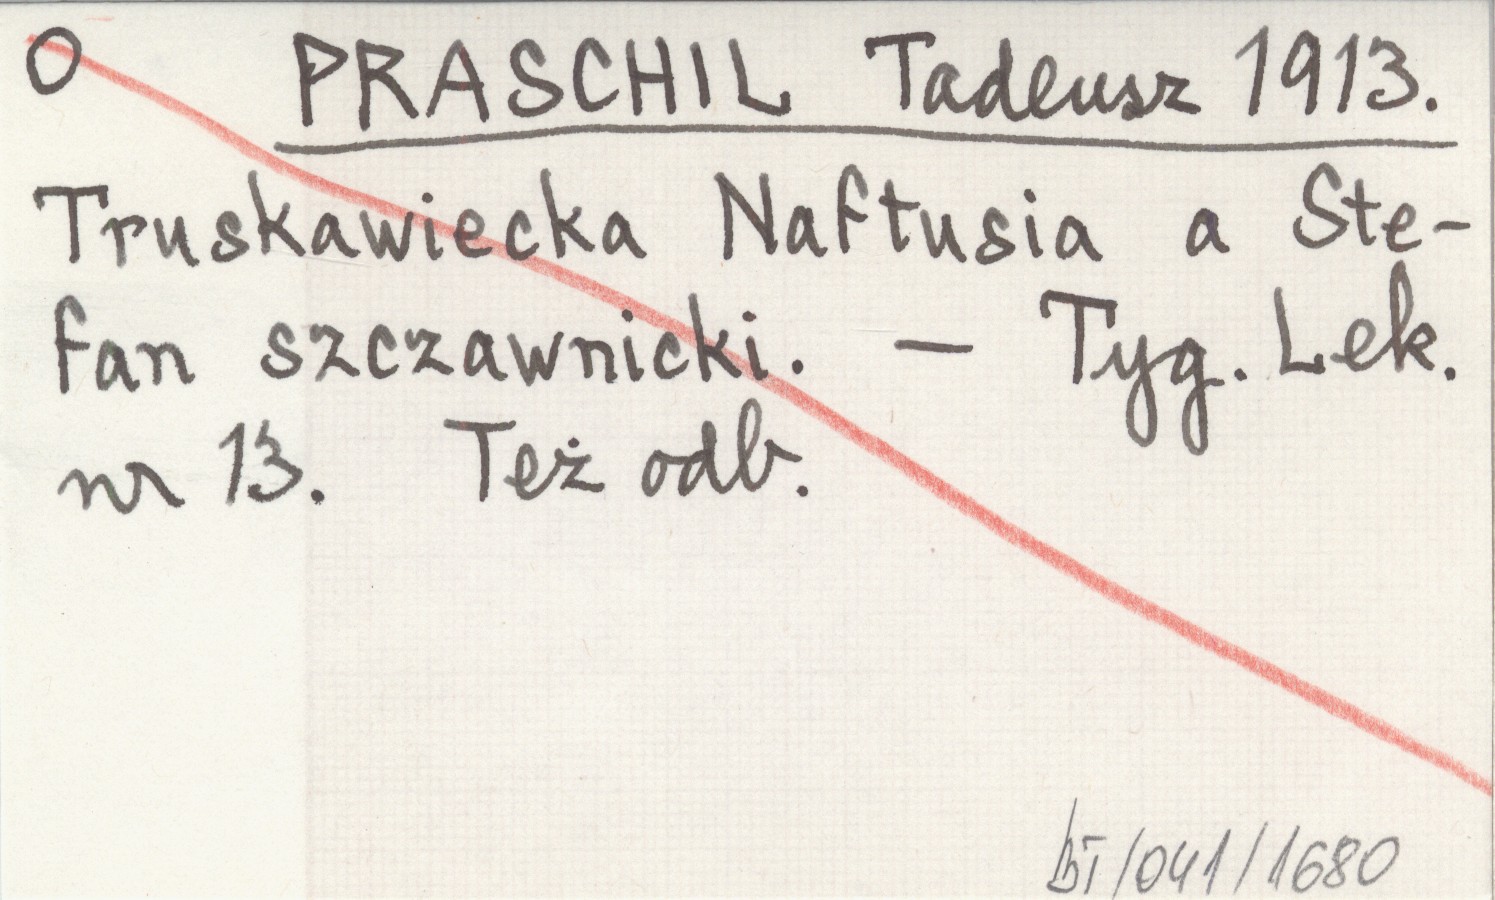 O PRASCHIL Tadeusz 1913.
Truskawiecka Naftusia a Ste-
fan szczawnicki. — Tyg. Lek.
nr 13. Też odb.
bI/041/1680